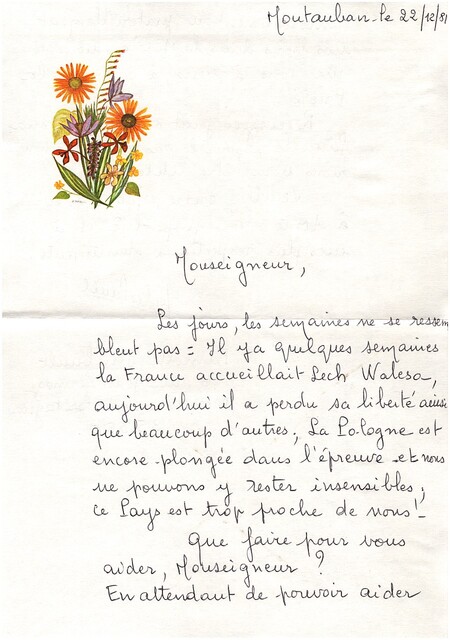 Montauban-le 22/12/81
Monseigneur,
Les jours, les semaines ne se ressem
blent pas = Il y a quelques semaines
la France accueillait Lech Walesa,
aujourd'hui il a perdu sa liberté ainsi
que beaucoup d'autres, La Pologne est
encore plongée dans l'épreuve et nous
ne pouvons y rester insensibles,
ce Pays est trop proche de nous! -
Que faire pour vous
aider, Monseigneur ?
En attendant de pouvoir aider